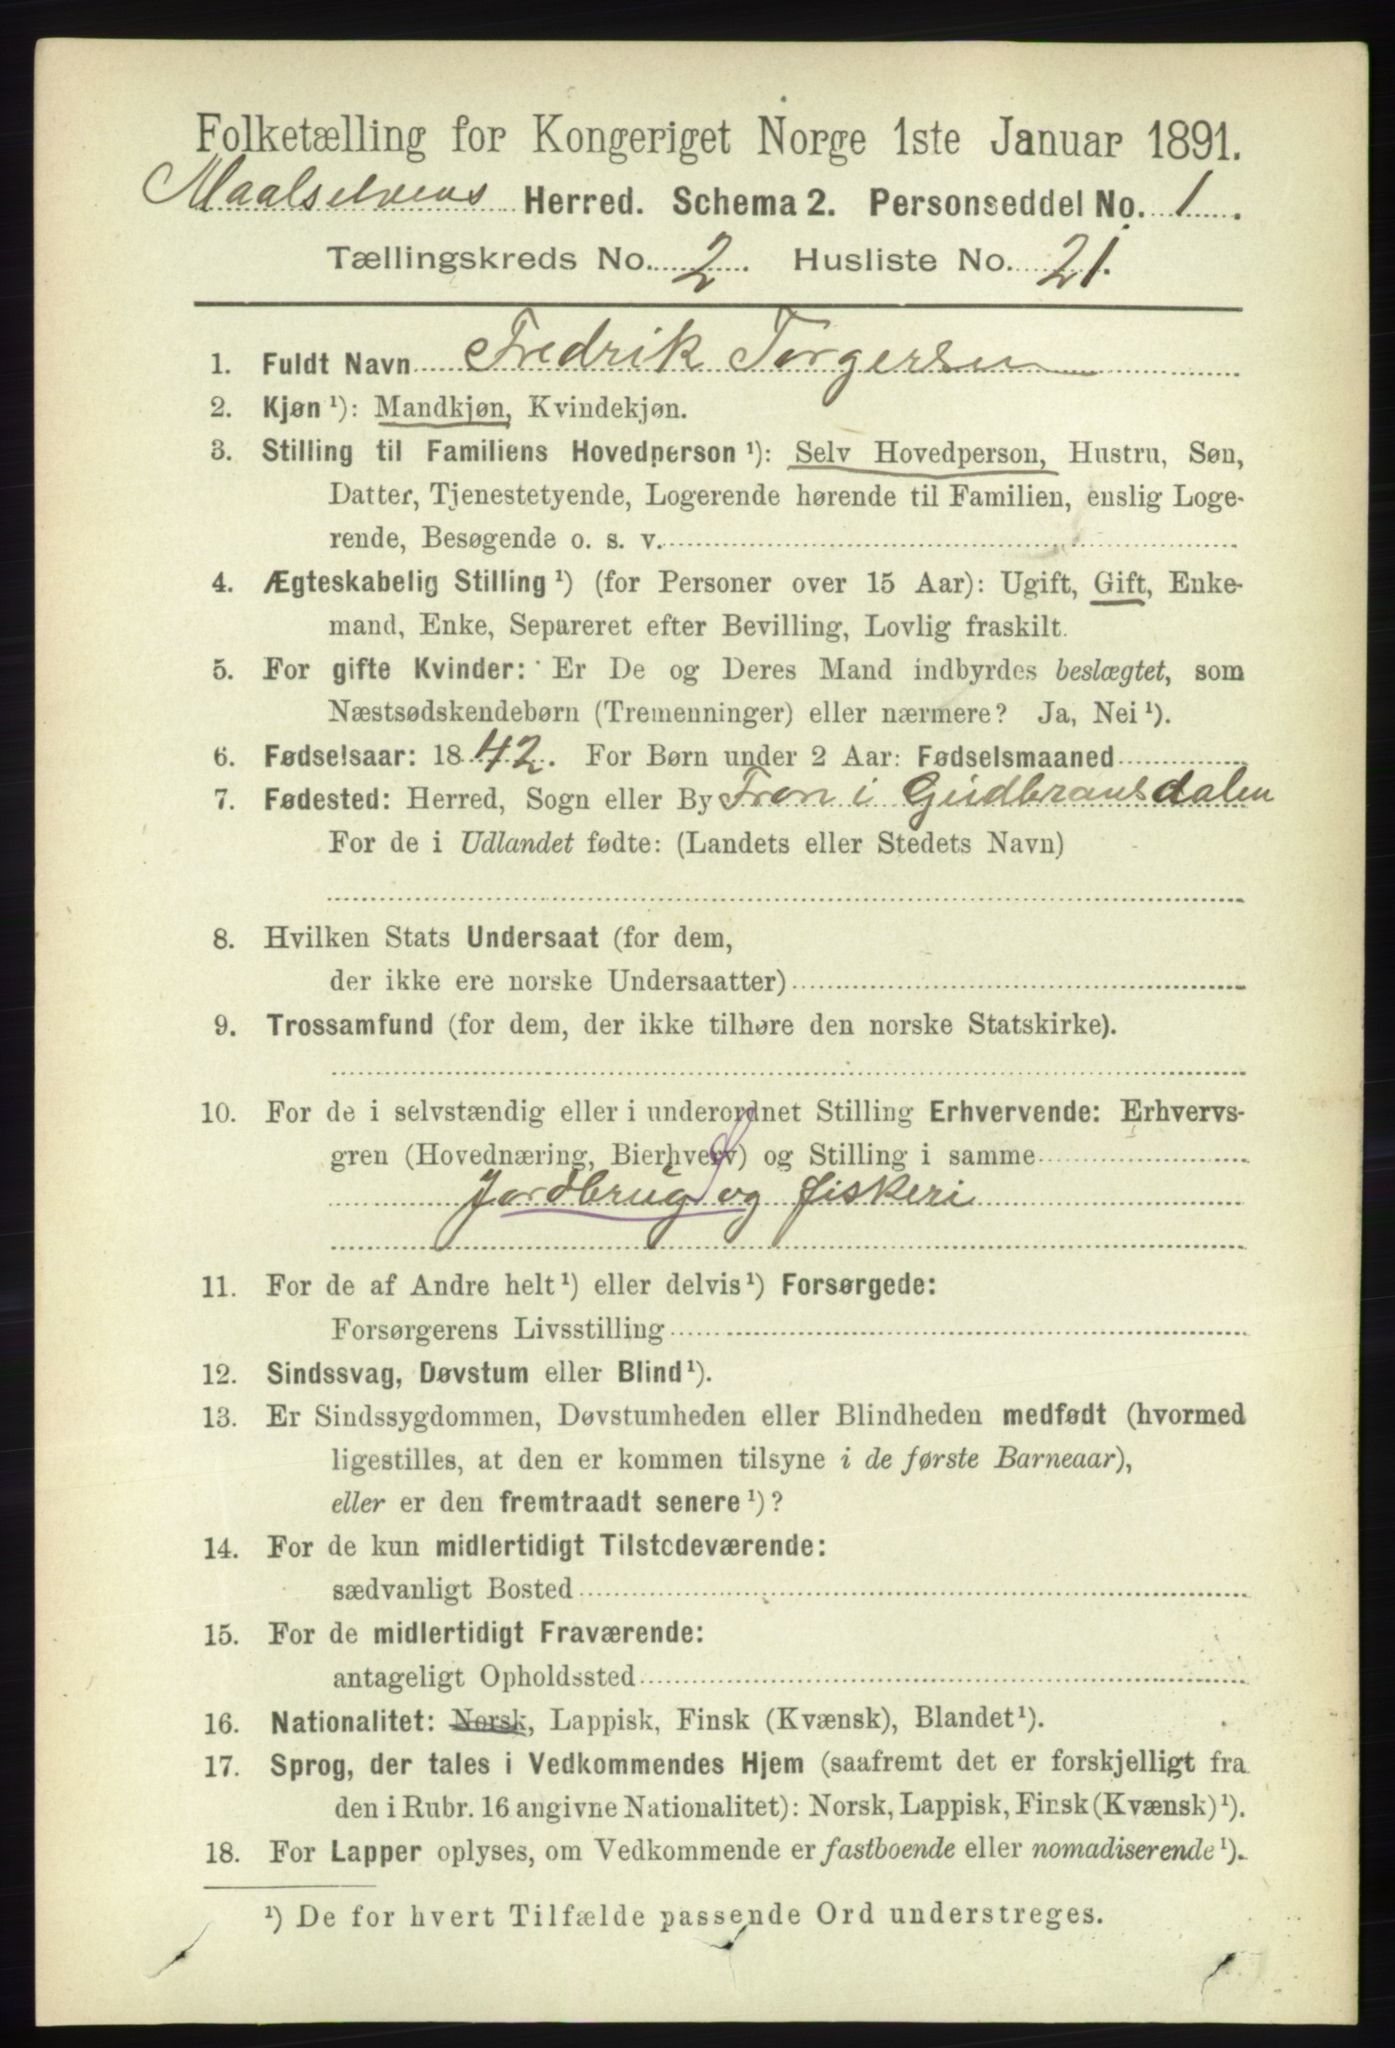 Folketælling for Kongeriget Norge 1ste Januar 1891.
Maalselvens Herred. Schema 2. Personseddel No. 1.
Tællingskreds No. 2. Husliste No. 21.
1. Fuldt Navn Fredrik Torgersen
2. Kjøn ¹): Mandkjøn, Kvindekjøn.
3. Stilling til Familiens Hovedperson ¹): Selv Hovedperson, Hustru, Søn,
Datter, Tjenestetyende, Logerende hørende til Familien, enslig Loge-
rende, Besøgende o. s. v.
4. Ægteskabelig Stilling ¹) (for Personer over 15 Aar): Ugift, Gift, Enke-
mand, Enke, Separeret efter Bevilling, Lovlig fraskilt.
5. For gifte Kvinder: Er De og Deres Mand indbyrdes beslægtet, som
Næstsødskendebørn (Tremenninger) eller nærmere? Ja, Nei ¹).
6. Fødselsaar: 1842. For Børn under 2 Aar: Fødselsmaaned
7. Fødested: Herred, Sogn eller By Fron i Gudbransdalen
For de i Udlandet fødte: (Landets eller Stedets Navn)
8. Hvilken Stats Undersaat (for dem,
der ikke ere norske Undersaatter)
9. Trossamfund (for dem, der ikke tilhøre den norske Statskirke).
10. For de i selvstændig eller i underordnet Stilling Erhvervende: Erhvervs-
gren (Hovednæring, Bierhverv) og Stilling i samme
Jordbrug og fiskeri
11. For de af Andre helt ¹) eller delvis ¹) Forsørgede:
Forsørgerens Livsstilling
12. Sindssvag, Døvstum eller Blind ¹).
13. Er Sindssygdommen, Døvstumheden eller Blindheden medfødt (hvormed
ligestilles, at den er kommen tilsyne i de første Barneaar),
eller er den fremtraadt senere ¹)?
14. For de kun midlertidigt Tilstedeværende:
sædvanligt Bosted
15. For de midlertidigt Fraværende:
antageligt Opholdssted
16. Nationalitet: Norsk, Lappisk, Finsk (Kvænsk), Blandet ¹).
17. Sprog, der tales i Vedkommendes Hjem (saafremt det er forskjelligt fra
den i Rubr. 16 angivne Nationalitet): Norsk, Lappisk, Finsk (Kvænsk) ¹).
18. For Lapper oplyses, om Vedkommende er fastboende eller nomadiserende ¹).
¹) De for hvert Tilfælde passende Ord understreges.